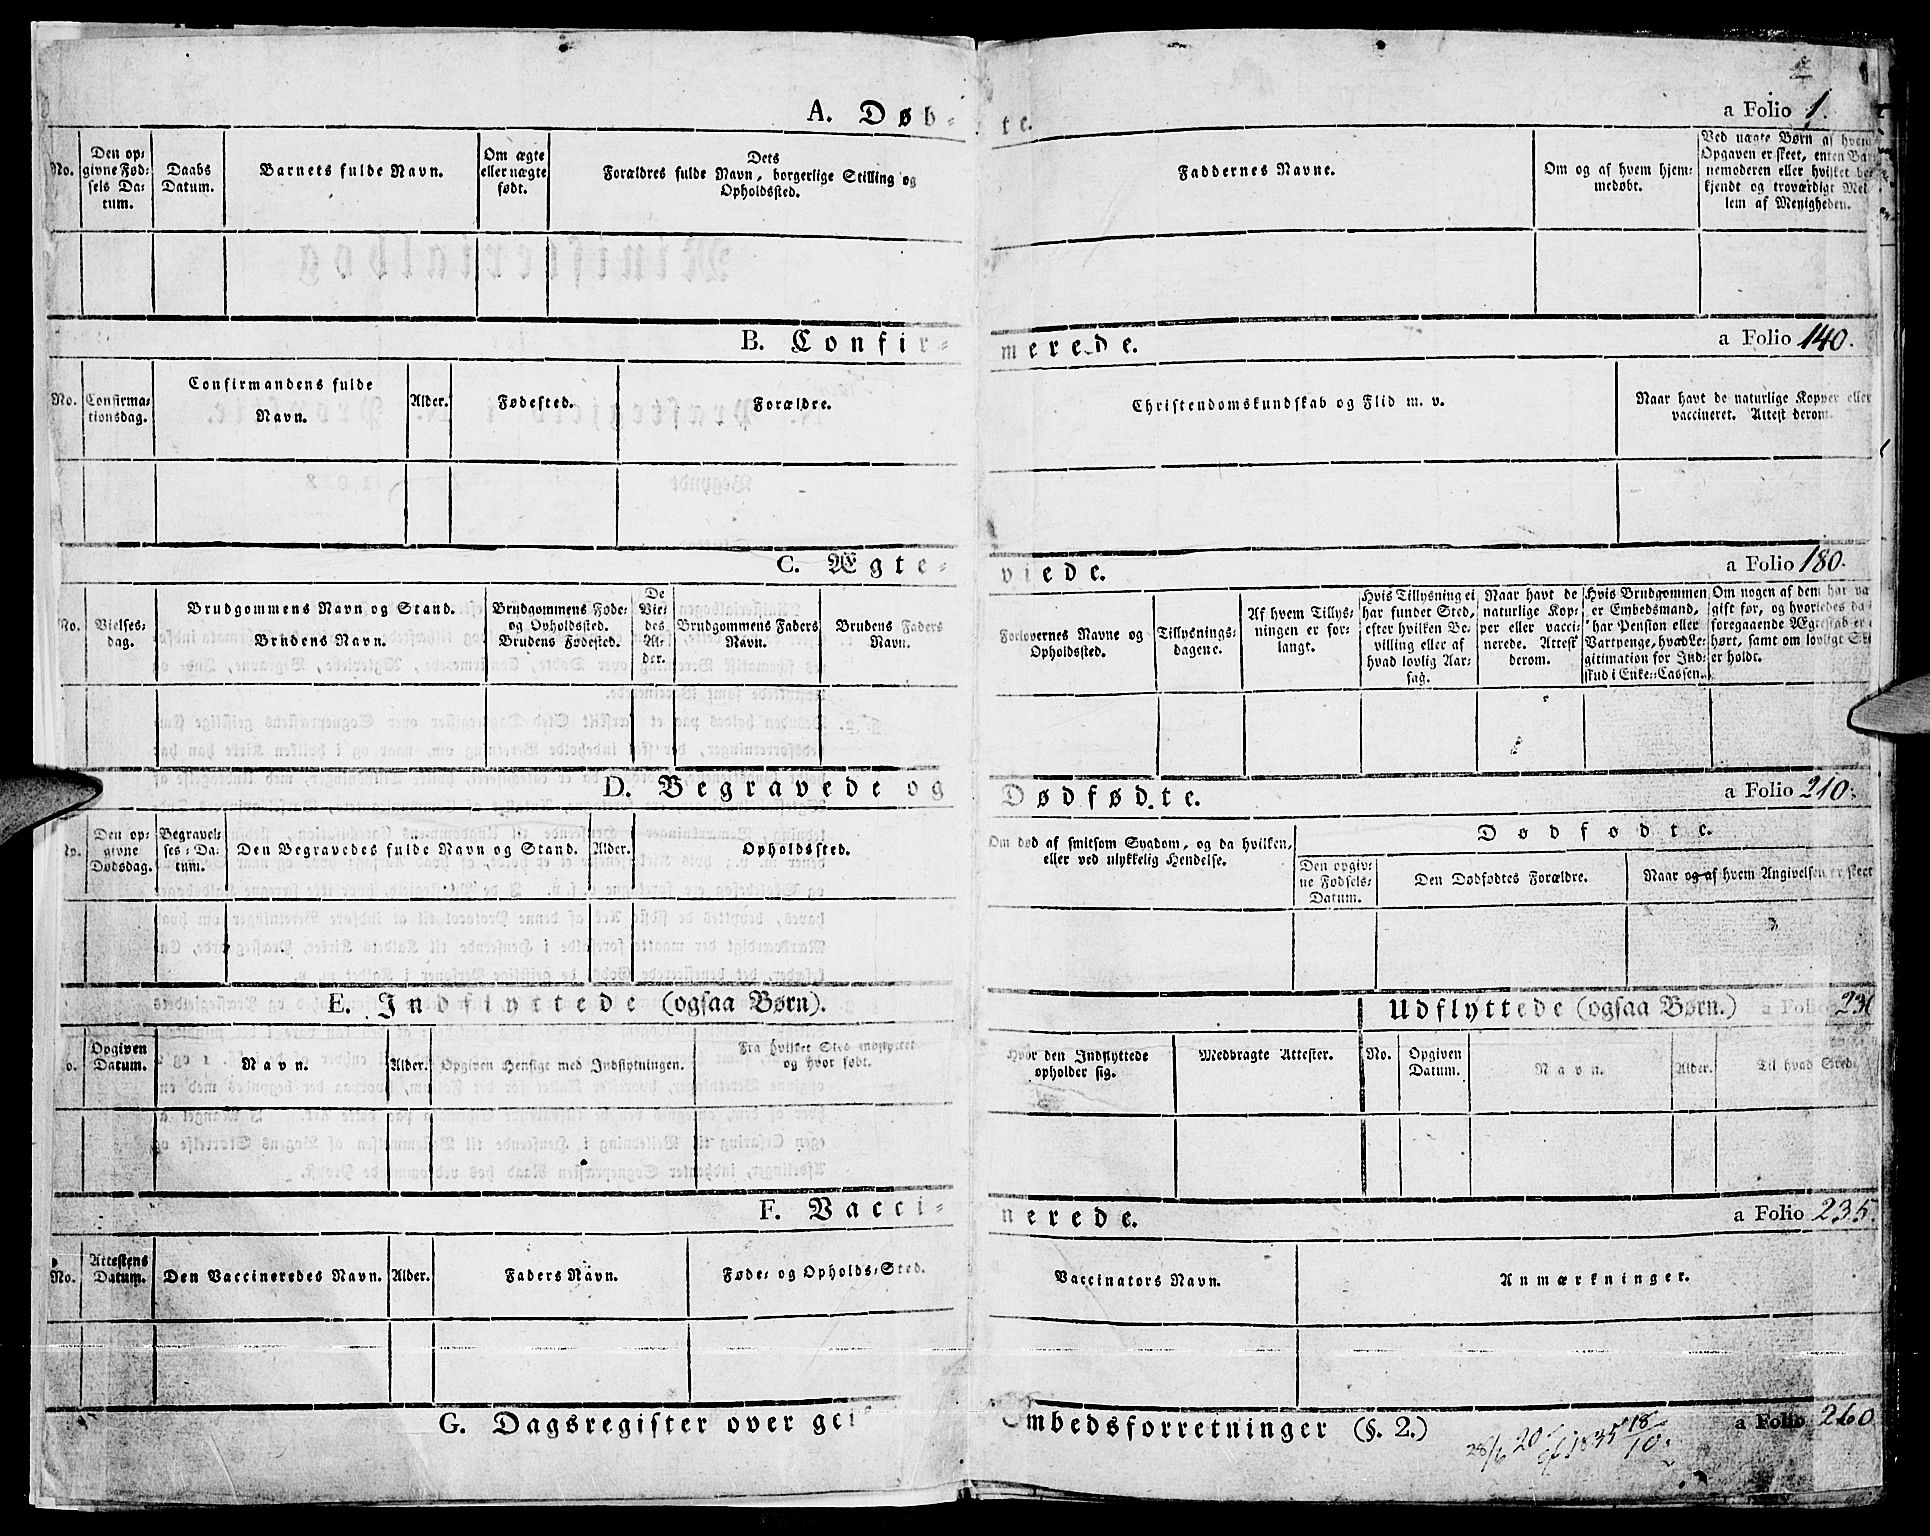 A. Døb-te. a Folio 1.
No. | Den opgivne Fødsels Datum. | Daabs Datum. | Barnets fulde Navn. | Om ægte eller uægte født. | Dets Forældres fulde Navn, borgerlige Stilling og Opholdssted. | Faddernes Navne. | Om og af hvem hjemmedøbt. | Ved uægte Børn af hvem Opgaven er skeet, enten Barnemoderen eller hvilket bekjendt og troværdigt Mellem af Menigheden.
B. Confir-merede. a Folio 140.
No. | Confirmationsdag. | Confirmandens fulde Navn. | Alder. | Fødested. | Forældre. | Christendomskundskab og Flid m. v. | Naar havt de naturlige Kopper eller vaccineret. Attest derom.
C. Ægte-viede. a Folio 180.
No. | Vielsesdag. | Brudgommens Navn og Stand. Brudens Navn. | Brudgommens Føde- og Opholdssted. Brudens Fødested. | De Viedes Alder. | Brudgommens Faders Navn. | Brudens Faders Navn. | Forlovernes Navne og Opholdssted. | Tillysningsdagene. | Af hvem Tillysningen er forlangt. | Hvis Tillysning ei har fundet Sted, efter hvilken Bevilling eller af hvad lovlig Aarsag. | Naar havt de naturlige Kopper eller vaccinerede. Attest derom. | Hvis Brudgommen er Embedsmand, har Pension eller Vartpenge, hvad Legitimation for Indskud i Enke-Cassen. | Om nogen af dem har va gift før, og hvorledes da foregaaende Ægteskab er hørt, samt om lovligt Ski er holdt.
D. Begravede og Dødfødte. a Folio 210.
No. | Den opgivne Dødsdag. | Begravelses-Datum. | Den Begravedes fulde Navn og Stand. | Alder. | Opholdssted. | Om død af smitsom Sygdom, og da hvilken, eller ved ulykkelig Hendelse. | Dødfødte. | Den opgivne Fødsels-Datum. | Den Dødfødtes Forældre. | Naar og af hvem Angivelsen er skeet
E. Indflyttede (ogsaa Børn). Udflyttede (ogsaa Børn.) a Folio 230
No. | Opgiven Datum. | Navn. | Alder. | Opgiven Hensigt med Indflytningen. | Fra hvilket Sted indflyttet og hvor født. | Hvor den Indflyttede opholder sig. | Medbragte Attester. | No. | Opgiven Datum. | Navn. | Alder. | Til hvad Sted.
F. Vacci-nerede. a Folio 235.
No. | Attestens Datum. | Den Vaccineredes Navn. | Alder. | Faders Navn. | Føde- og Opholds-Sted. | Vaccinators Navn. | Anmærkninger.
G. Dagsregister over gei Embedsforretninger (§. 2.) a Folio 260
28/6 20 1835 18/10